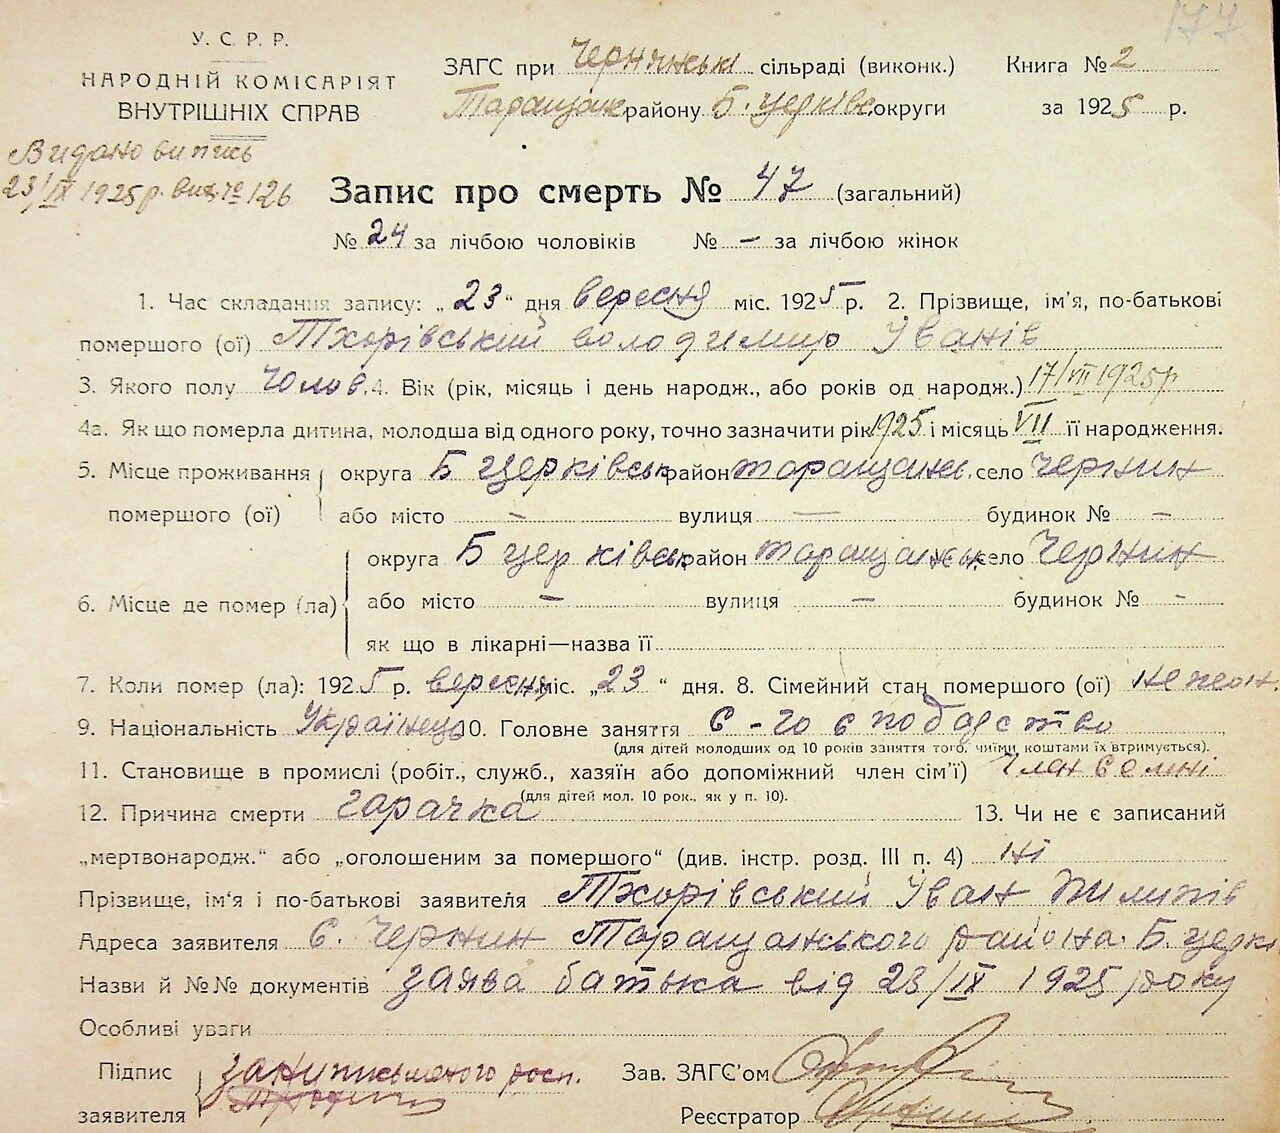 177
У. С. Р. Р.
НАРОДНІЙ КОМІСАРІЯТ
ВНУТРІШНІХ СПРАВ
ЗАГС при Чернинські сільраді (виконк.) Книга № 2
Таращанс району Б. Церківс округи за 1925 р.
Видано випись
23/IX 1925 р. вид. № 126
Запис про смерть № 47 (загальний)
№ 24 за лічбою чоловіків № – за лічбою жінок
1. Час складання запису: „23“ дня вересня міс. 1925 р. 2. Прізвище, ім'я, по-батькові
помершого (ої) Тхорівський володимир Іванів
3. Якого полу чолов. 4. Вік (рік, місяць і день народж., або років од народж.) 17/VII 1925 р
4а. Як що померла дитина, молодша від одного року, точно зазначити рік 1925 і місяць VII її народження.
5. Місце проживання округа Б Церківськ район таращанс. село Чернин
помершого (ої) або місто – вулиця — будинок № –
округа Б Церківськ район таращанськ село Чернин
6. Місце де помер (ла) або місто – вулиця – будинок № -
як що в лікарні—назва її
7. Коли помер (ла): 1925 р. вересня міс. „23“ дня. 8. Сімейний стан помершого (ої) не жон.
9. Національність Українець 10. Головне заняття С-го є подарство
(для дітей молодших од 10 років заняття того, чиїми коштами їх втримується).
11. Становище в промислі (робіт., служб., хазяїн або допоміжний член сім'ї) Член семні
(для дітей мол. 10 рок., як у п. 10).
12. Причина смерти гарачка 13. Чи не є записаний
„мертвонародж.“ або „оголошеним за помершого“ (див. інстр. розд. III п. 4) ні
Прізвище, ім'я і по-батькові заявителя Тхорівський Іван Пилипів
Адреса заявителя С. Чернин Таращанського району Б. Церкі
Назви й №№ документів заява батька від 23/IX 1925 року
Особливі уваги
Підпис за неписьменого росп.
заявителя
Зав. ЗАГС'ом
Реєстратор